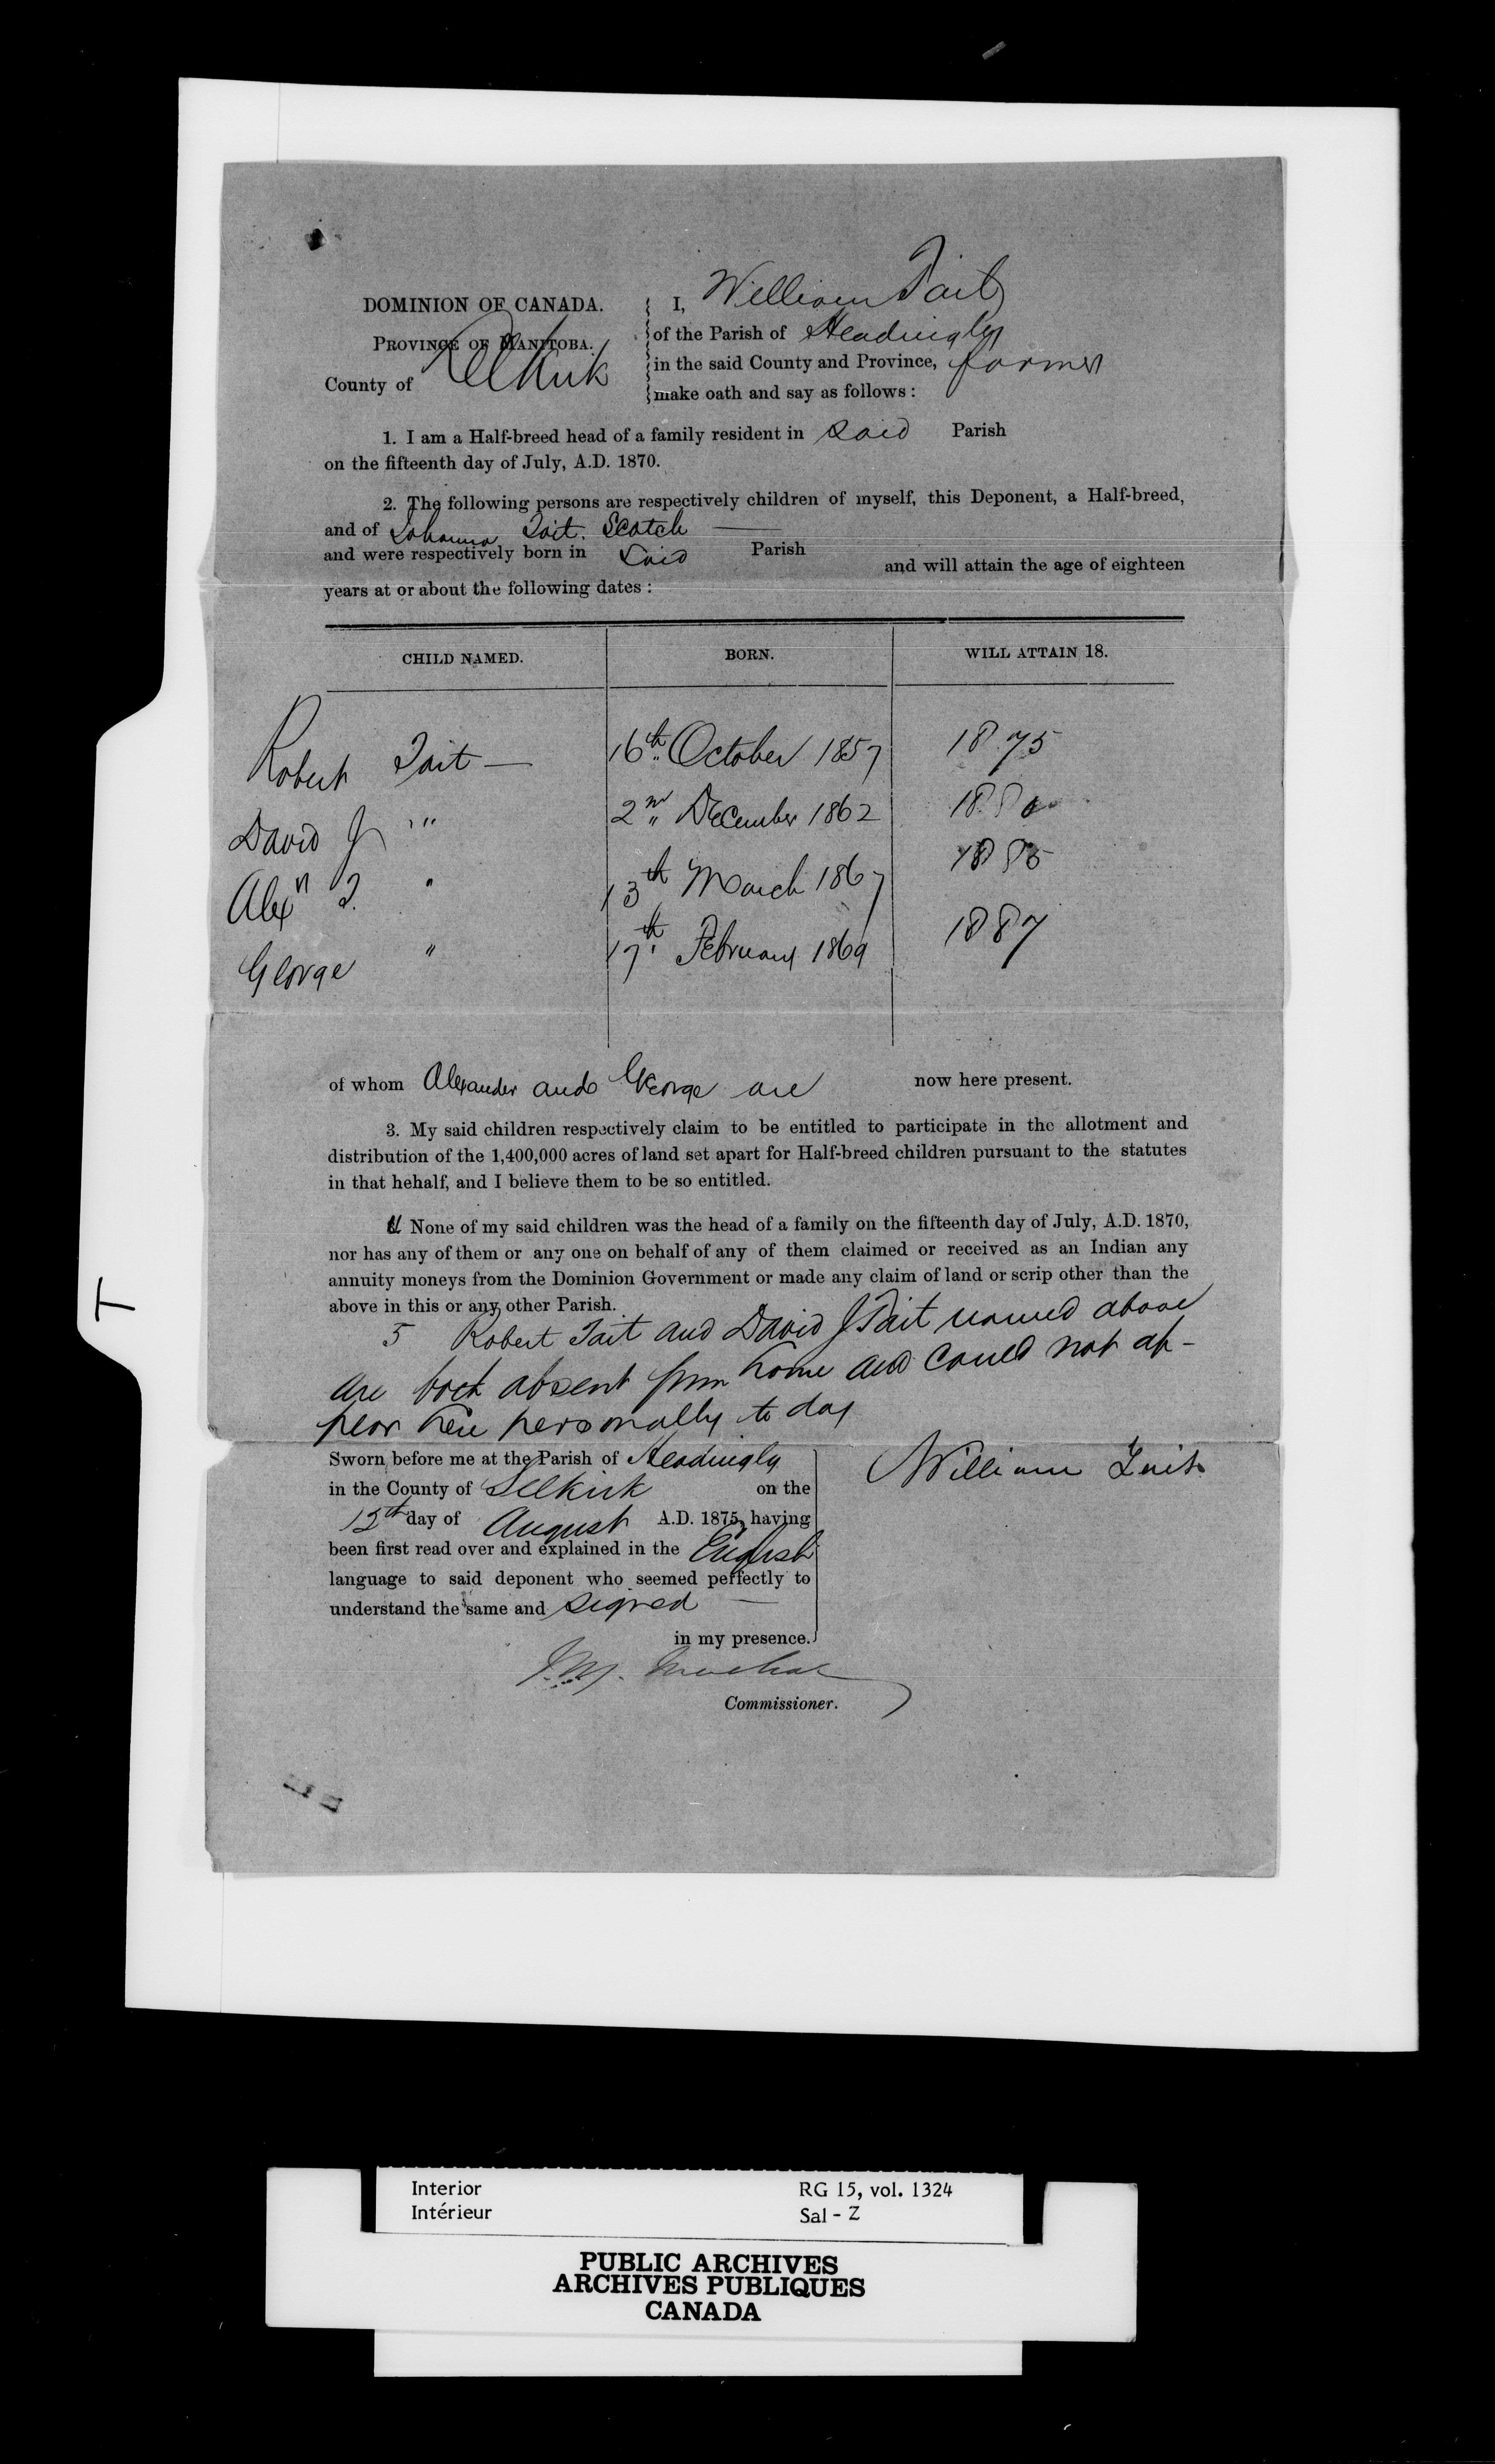 DOMINION OF CANADA.
PROVINCE OF MANITOBA.
County of Selkirk
I, William Tait
of the Parish of Headingly
in the said County and Province, farmer
make oath and say as follows :
1. I am a Half-breed head of a family resident in said Parish
on the fifteenth day of July, A.D. 1870.
2. The following persons are respectively children of myself, this Deponent, a Half-breed,
and of Johanna Tait. Scotch —
and were respectively born in said Parish
and will attain the age of eighteen
years at or about the following dates :
CHILD NAMED. BORN. WILL ATTAIN 18.
Robert Tait — 16th October 1857 1875
David J " 2nd December 1862 1880
Alexr T. " 13th March 1867 1885
George " 17th February 1869 1887
of whom Alexander and George are now here present.
3. My said children respectively claim to be entitled to participate in the allotment and
distribution of the 1,400,000 acres of land set apart for Half-breed children pursuant to the statutes
in that hehalf, and I believe them to be so entitled.
4 None of my said children was the head of a family on the fifteenth day of July, A.D. 1870,
nor has any of them or any one on behalf of any of them claimed or received as an Indian any
annuity moneys from the Dominion Government or made any claim of land or scrip other than the
above in this or any other Parish.
5 Robert Tait and David J Tait named above
are both absent from home and could not ap-
pear here personally to day
Sworn before me at the Parish of Headingly
in the County of Selkirk on the
13th day of August A.D. 1875, having
been first read over and explained in the English
language to said deponent who seemed perfectly to
understand the same and signed —
in my presence.
William Tait
J.M. Machar
Commissioner.
T
Interior RG 15, vol. 1324
Intérieur Sal - Z
PUBLIC ARCHIVES
ARCHIVES PUBLIQUES
CANADA